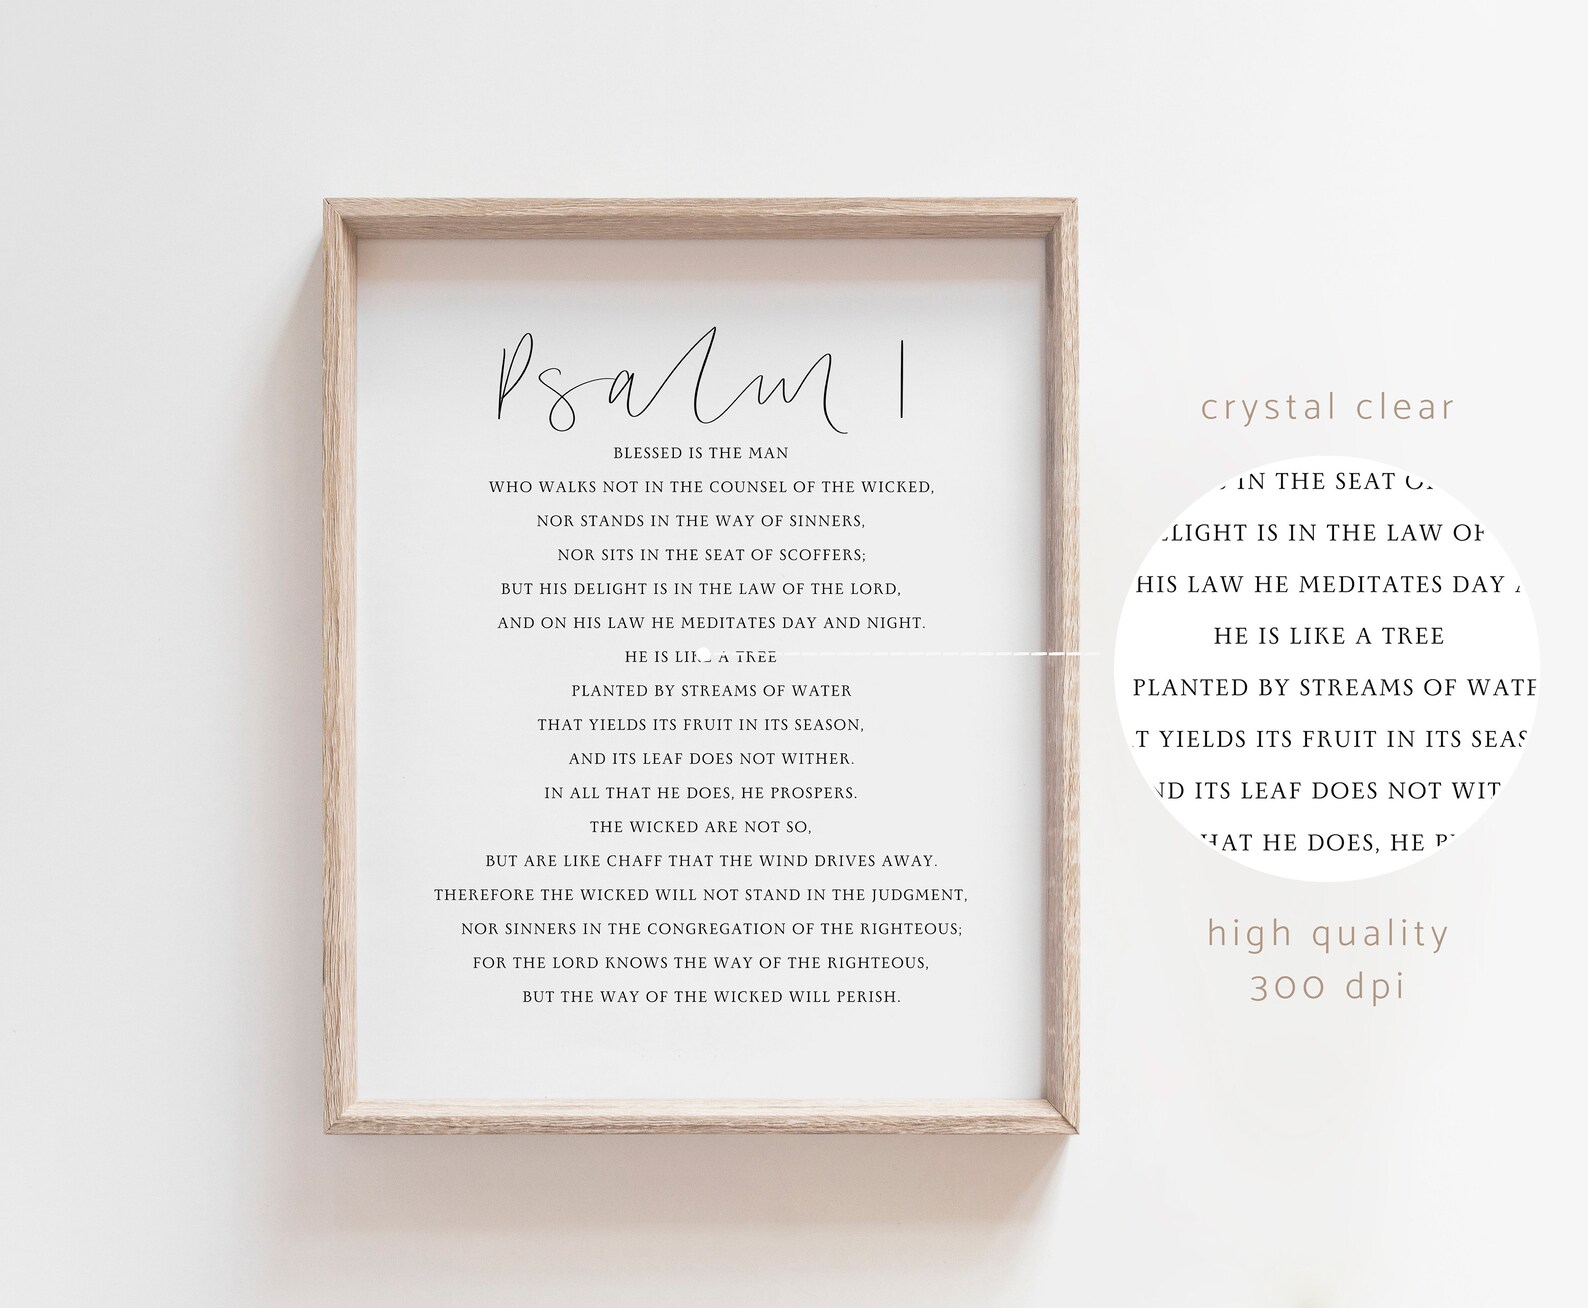 Psalm 1
BLESSED IS THE MAN
WHO WALKS NOT IN THE COUNSEL OF THE WICKED,
NOR STANDS IN THE WAY OF SINNERS,
NOR SITS IN THE SEAT OF SCOFFERS;
BUT HIS DELIGHT IS IN THE LAW OF THE LORD,
AND ON HIS LAW HE MEDITATES DAY AND NIGHT.
HE IS LIKE A TREE
PLANTED BY STREAMS OF WATER
THAT YIELDS ITS FRUIT IN ITS SEASON,
AND ITS LEAF DOES NOT WITHER.
IN ALL THAT HE DOES, HE PROSPERS.
THE WICKED ARE NOT SO,
BUT ARE LIKE CHAFF THAT THE WIND DRIVES AWAY.
THEREFORE THE WICKED WILL NOT STAND IN THE JUDGMENT,
NOR SINNERS IN THE CONGREGATION OF THE RIGHTEOUS;
FOR THE LORD KNOWS THE WAY OF THE RIGHTEOUS,
BUT THE WAY OF THE WICKED WILL PERISH.
crystal clear
IN THE SEAT
LIGHT IS IN THE LAW OF
HIS LAW HE MEDITATES DAY
HE IS LIKE A TREE
PLANTED BY STREAMS OF WATE
T YIELDS ITS FRUIT IN ITS SEAS
ND ITS LEAF DOES NOT WIT
HAT HE DOES, HE
high quality
300 dpi